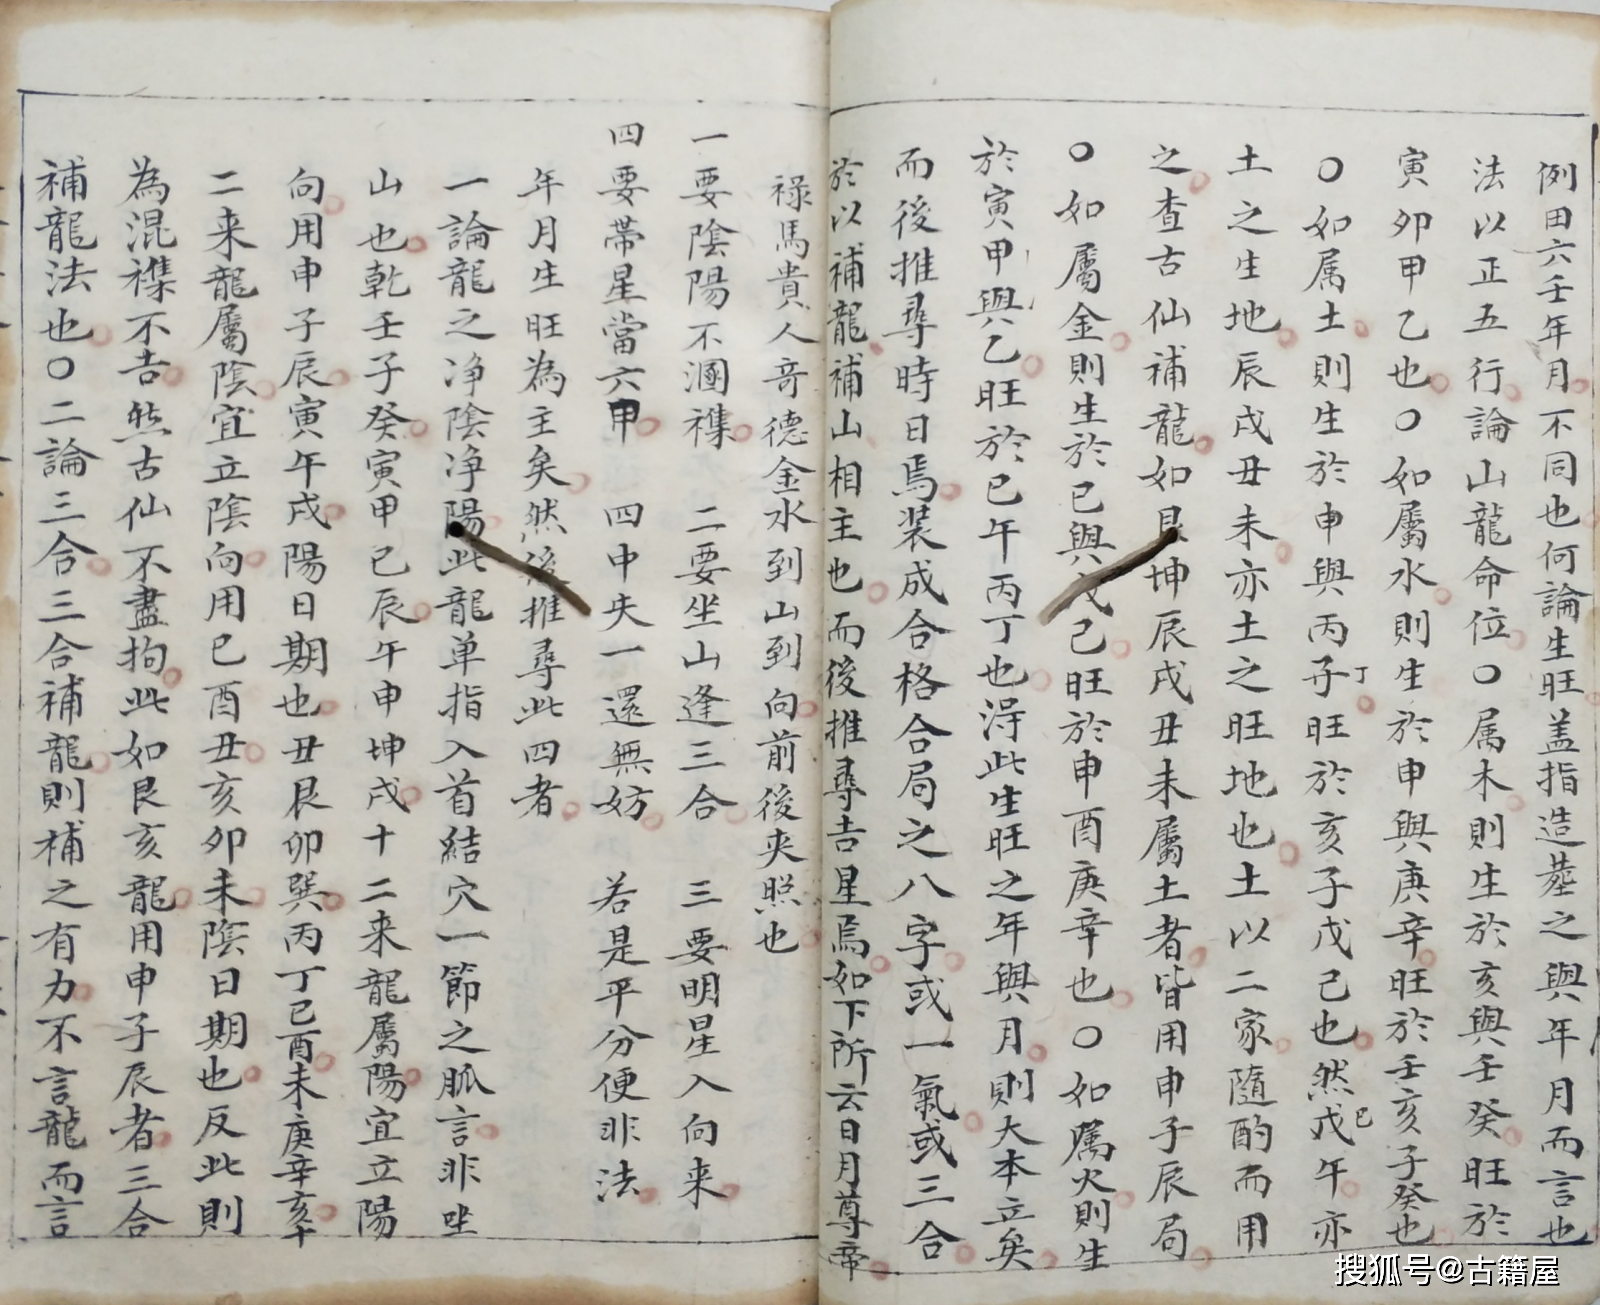 例田六壬年月不同也何論生旺盖指造塟之與年月而言也
法以正五行論山龍命位〇属木則生於亥與壬癸旺於
寅卯甲乙也〇如屬水則生於申與庚辛旺於壬亥子癸也
〇如属土則生於申與丙丁旺於亥子戊己也然戊己午亦
土之生地辰戌丑未亦土之旺地也土以二家隨酌而用
之查古仙補龍如艮坤辰戌丑未屬土者皆用申子辰局
〇如屬金則生於巳與戊己旺於申酉庚辛也〇如属火則生
於寅甲與乙旺於巳午丙丁也淂此生旺之年與月則大本立矣
而後推尋時日焉装成合格合局之八字或一氣或三合
於以補龍補山相主也而後推尋吉星焉如下所云日月尊帝
禄馬貴人竒德金水到山到向前後夾照也
一要陰陽不溷襍 二要坐山逢三合 三要明星入向来
四要帶星當六甲 四中失一還無妨 若是平分便非法
年月生旺為主矣然後推尋此四者
一論龍之净陰净陽此龍单指入首結穴一節之脈言非坐
山也乾壬子癸寅甲巳辰午申坤戌十二来龍屬陽宜立陽
向用申子辰寅午戌陽日期也丑艮卯巽丙丁巳酉未庚辛亥十
二来龍屬陰宜立陰向用巳酉丑亥卯未陰日期也反此則
為混襍不吉然古仙不盡拘此如艮亥龍用申子辰者三合
補龍法也〇二論三合三合補龍則補之有力不言龍而言
搜狐号@古籍屋